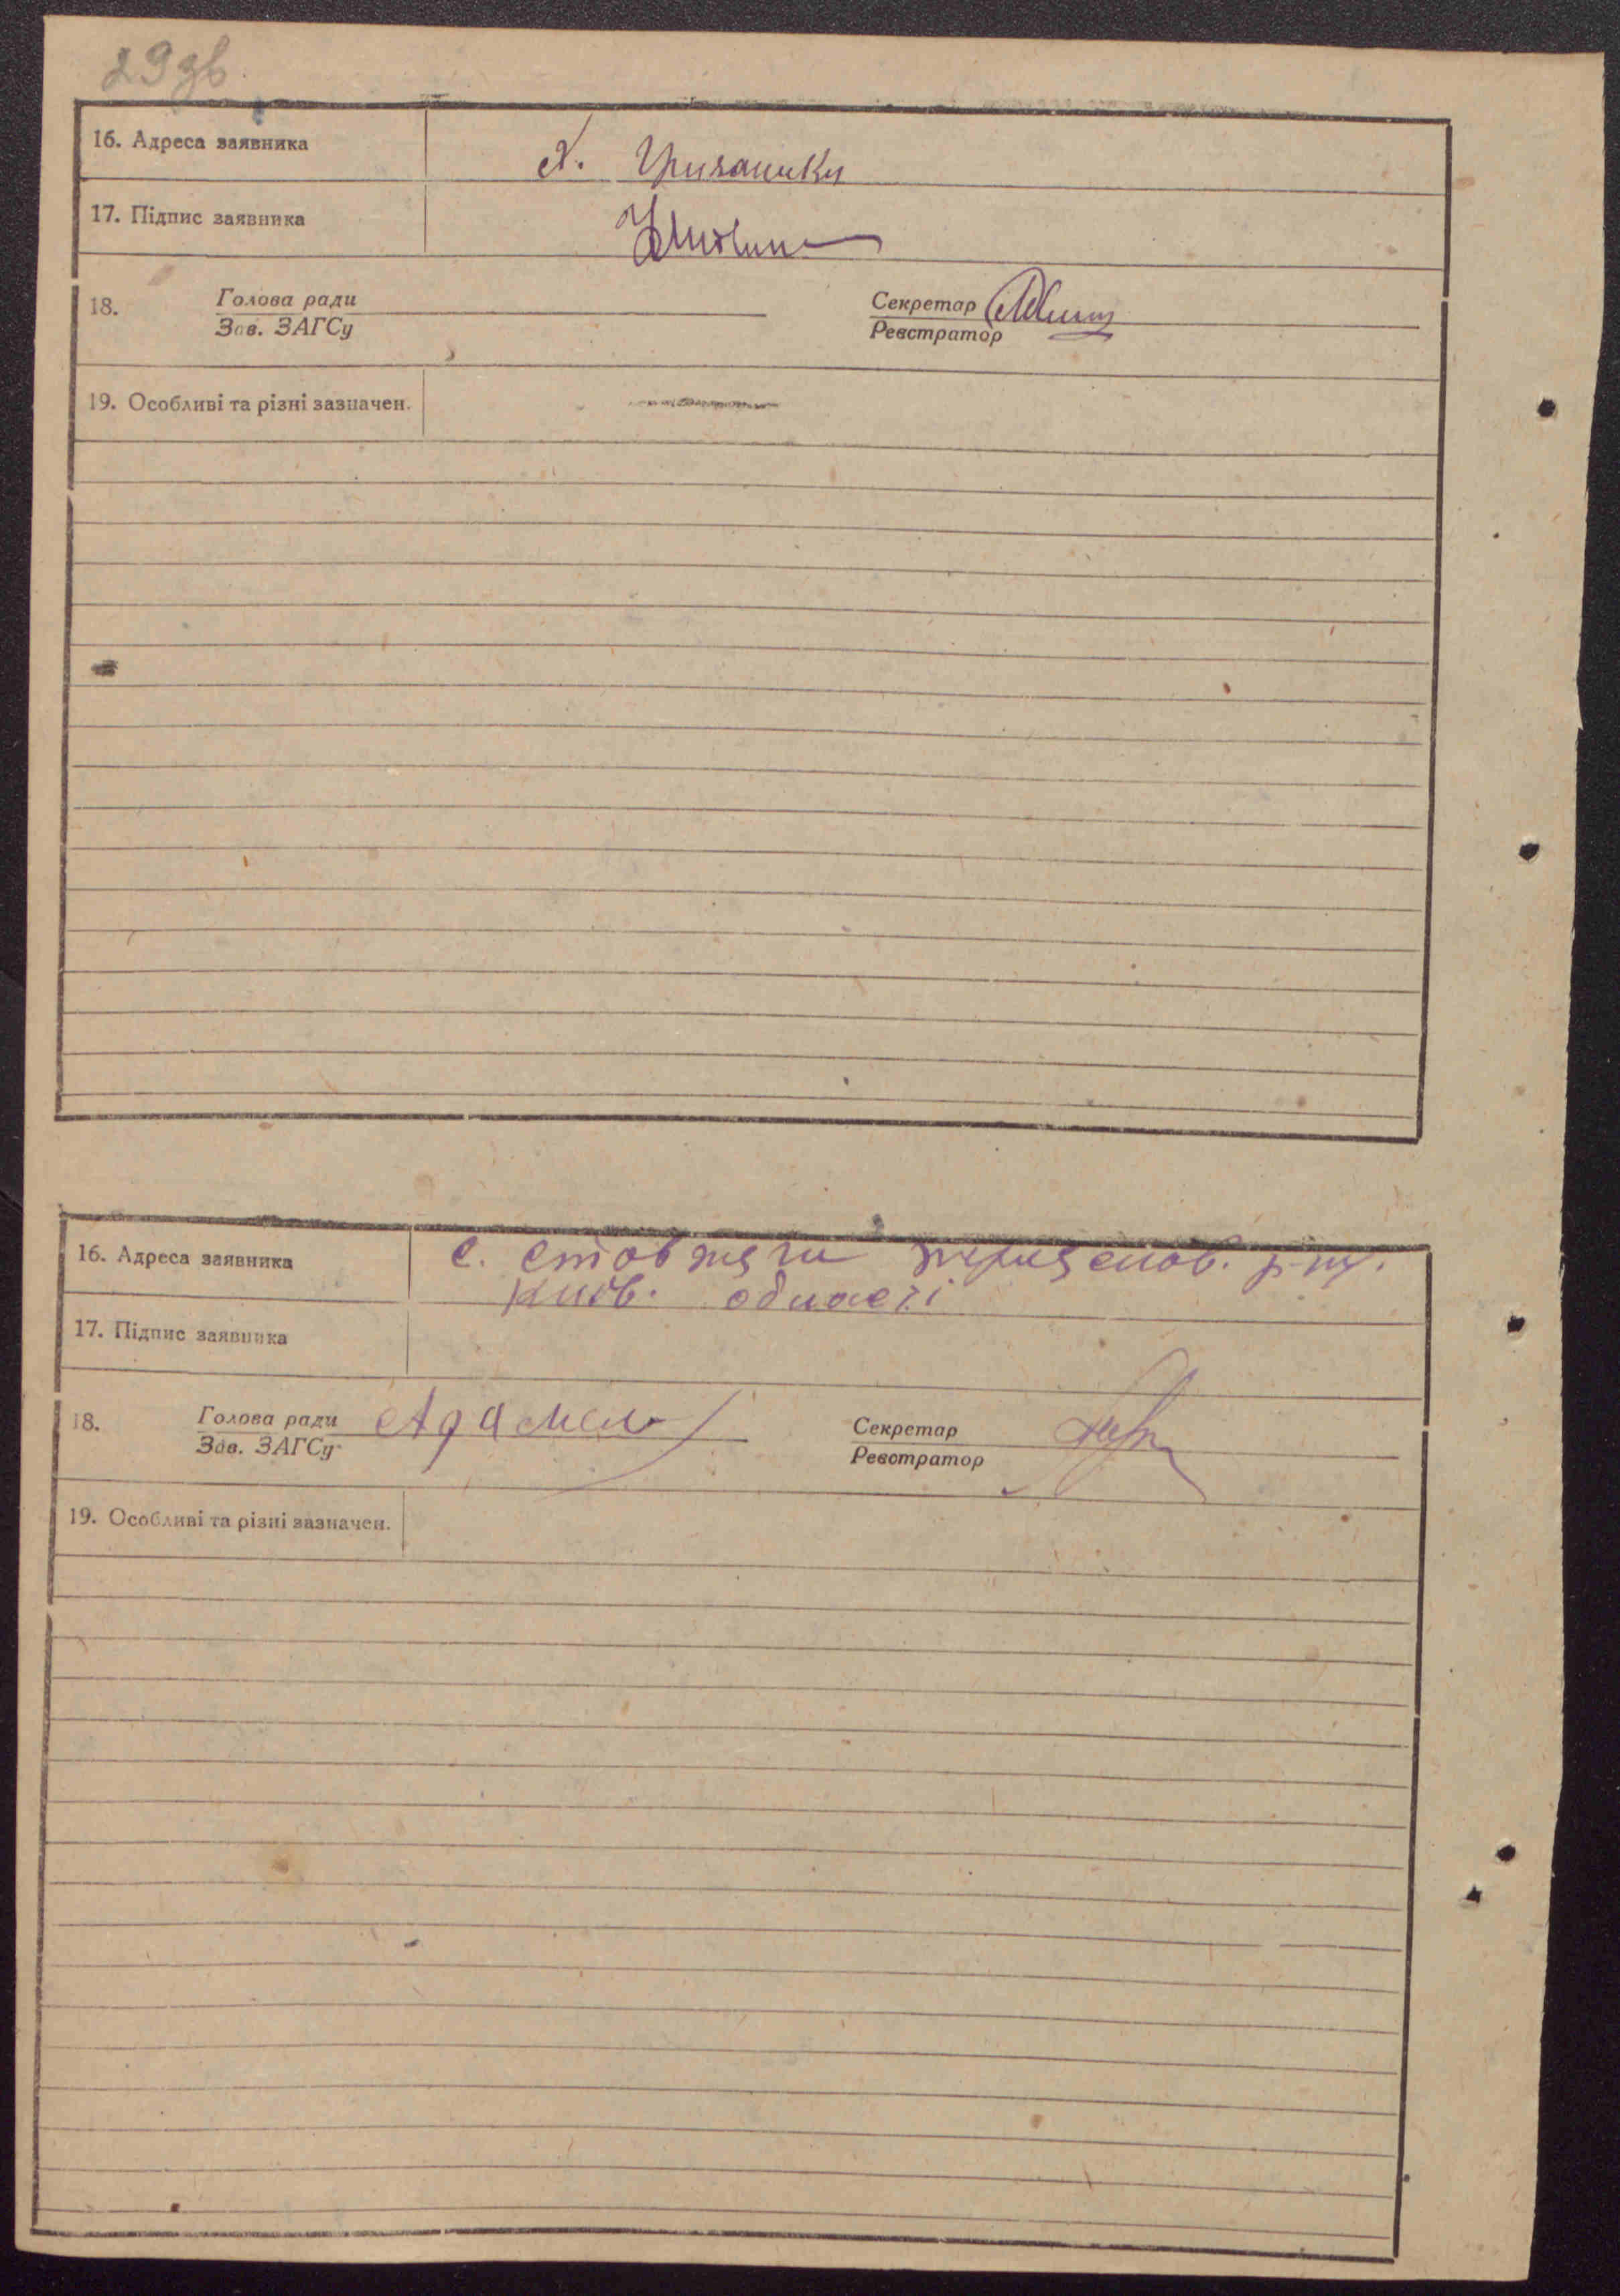 29зв
16. Адреса заявника х.
17. Підпис заявника
18. Голова ради Секретар
Зав. ЗАГСу Реєстратор
19. Особливі та різні зазначен.
16. Адреса заявника с. Стовпяги р-ну.
Київ. області
17. Підпис заявника
18. Голова ради Секретар
Зав. ЗАГСу Реєстратор
19. Особливі та різні зазначен.